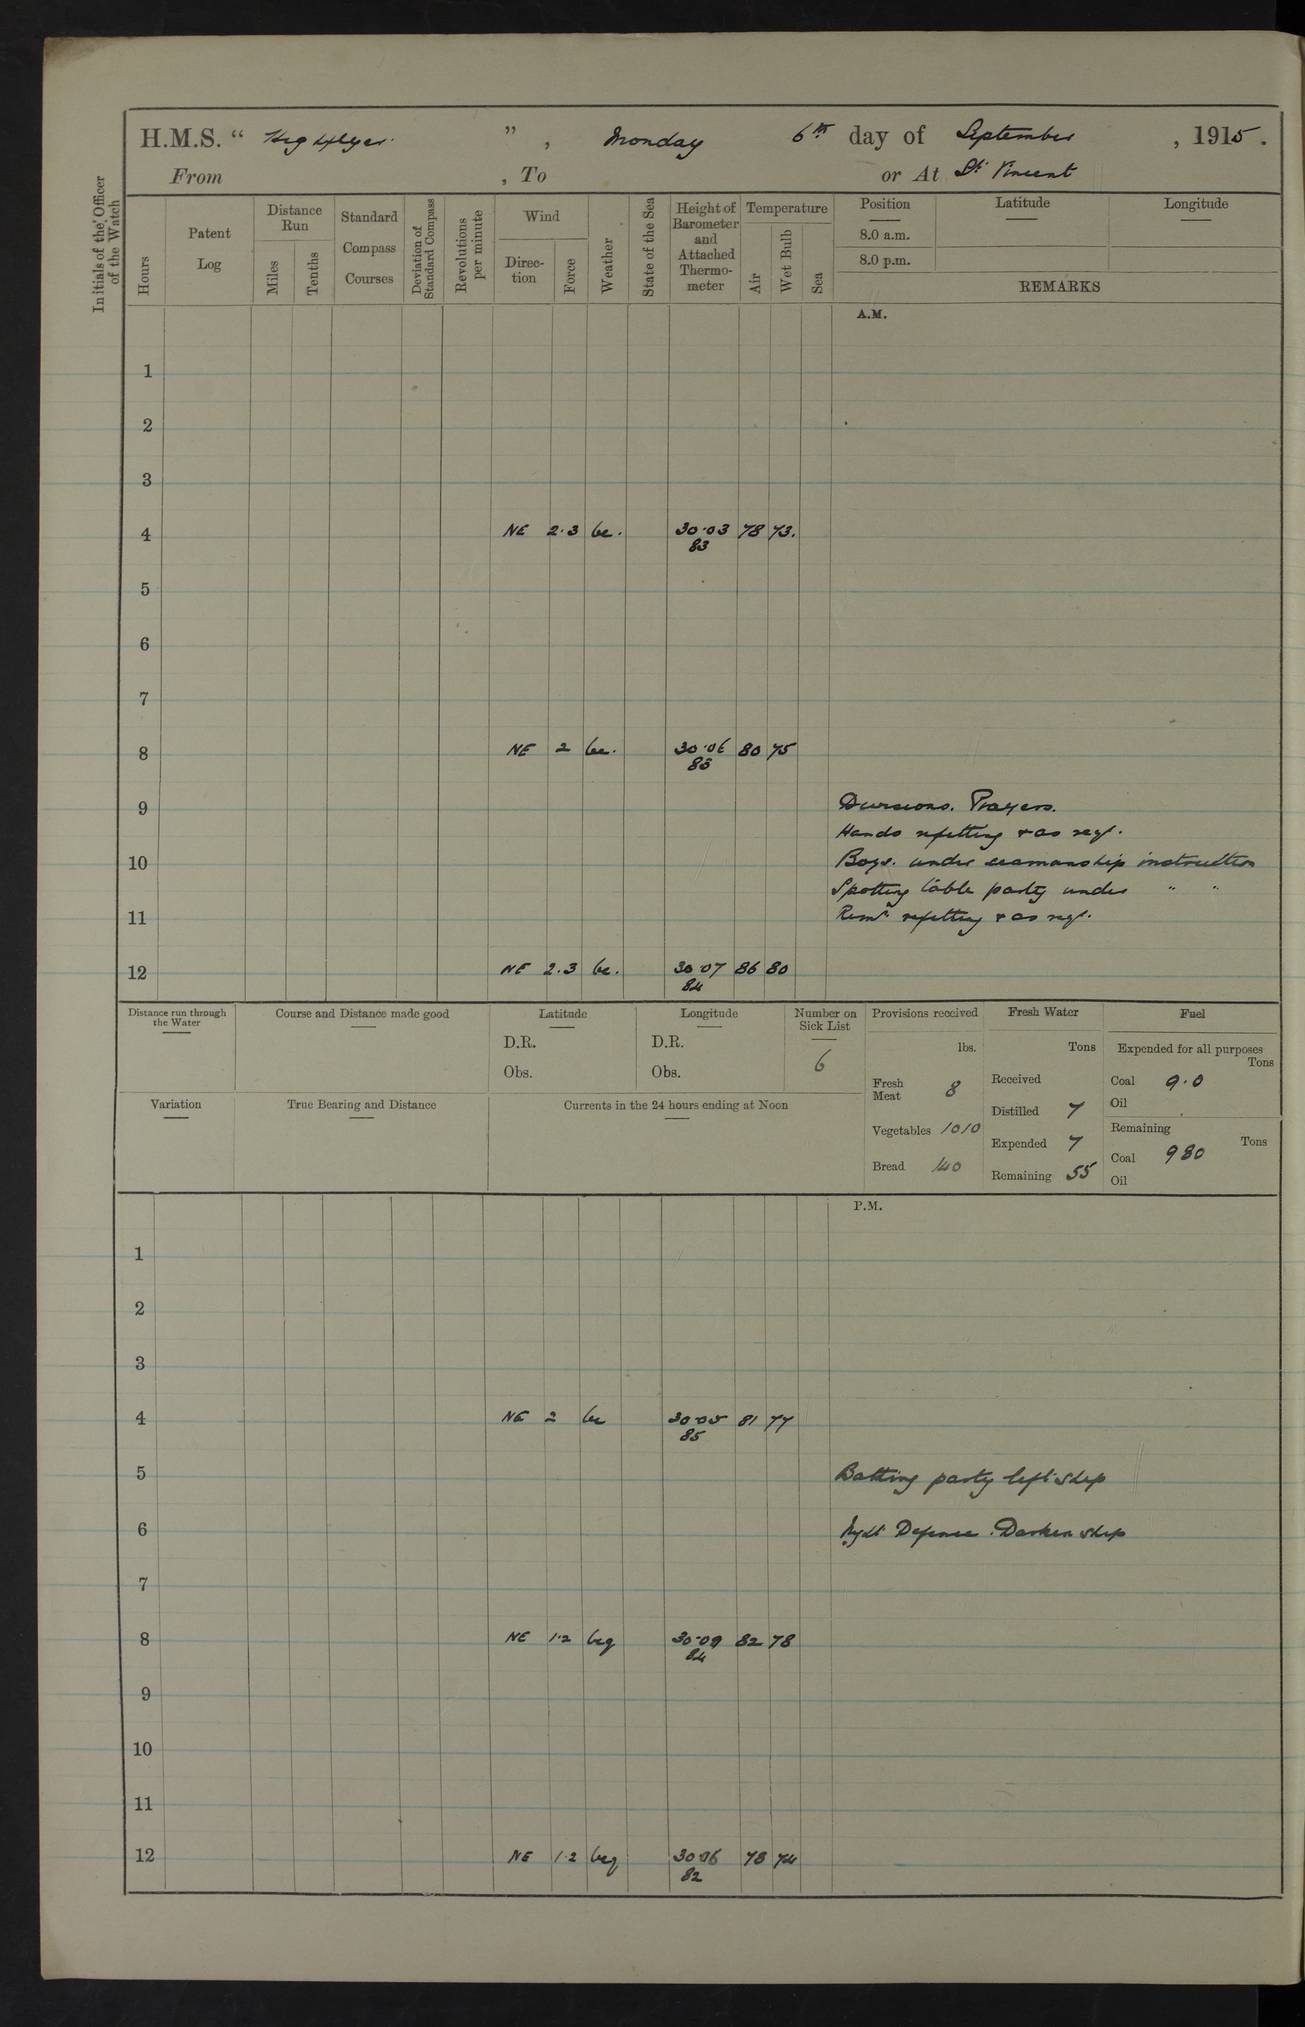 H.M.S. “ Highflyer. ” , Monday 6th day of September , 1915 .
From , To or At St Vincent
Initials of the Officer of the Watch
Hours
Patent Log
Distance Run
Miles
Tenths
Standard Compass Courses
Deviation of Standard Compass
Revolutions per minute
Wind
Direc-tion
Force
Weather
State of the Sea
Height of Barometer and Attached Thermo-meter
Temperature
Air
Wet Bulb
Sea
Position Latitude Longitude
8.0 a.m.
8.0 p.m.
REMARKS
A.M.
1
2
3
4 NE 2.3 bc. 30.03 78 73.
83
5
6
7
8 NE 2 bc. 30.06 80 75
83
9 Divisions. Prayers.
Hands refitting & as reqd.
10 Boys. under seamanship instruction
Spotting table party under " "
11 Remdr refitting & as reqd.
12 NE 2.3 bc. 30.07 86 80
84
Distance run through the Water
Course and Distance made good
Latitude
D.R.
Obs.
Longitude
D.R.
Obs.
Number on Sick List
6
Provisions received
lbs.
Fresh Meat 8
Vegetables 1010
Bread 140
Fresh Water
Tons
Received
Distilled 7
Expended 7
Remaining 55
Fuel
Expended for all purposes
Tons
Coal 9.0
Oil
Remaining
Tons
Coal 980
Oil
Variation
True Bearing and Distance
Currents in the 24 hours ending at Noon
P.M.
1
2
3
4 NE 2 bc 30.05 81 77
85
5 Bathing party left ship
6 Night Defence. Darken ship
7
8 NE 1.2 bcq 30.09 82 78
84
9
10
11
12 NE 1.2 bcq 30.06 78 74
82